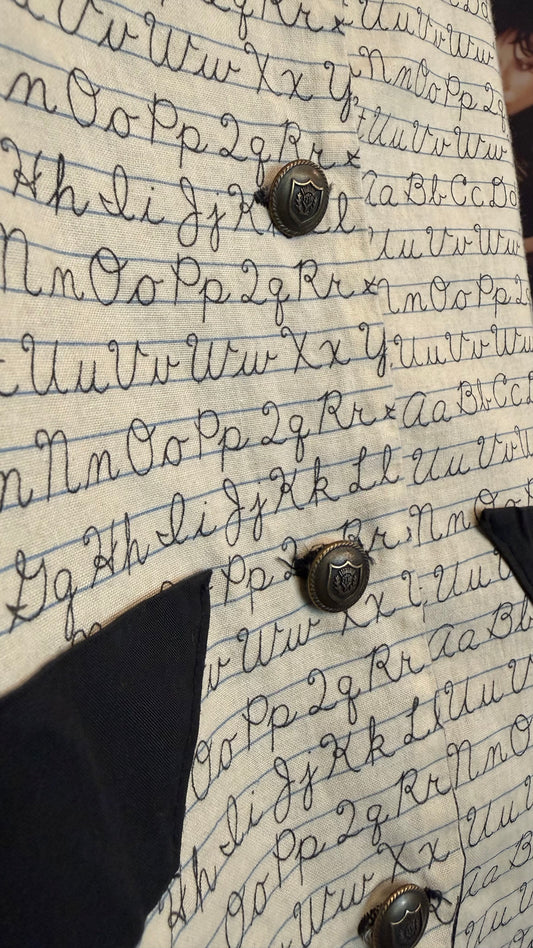 Rr
Vv Ww Xx Y
n Oo Pp Qq Rr
Hh Ii Jj K l
Nn Oo Pp Qq Rr
Uu Vv Ww Xx Y
Nn Oo Pp Qq Rr
Gg Hh Ii Jj Kk Ll
Pp Rr
v Ww Xx
Oo Pp Qq Rr
Hh Ii Jj Kk Ll
Oo Pp Qq Rr
Ww Xx
Uu Vv Ww
Nn Oo Pp Qq
Uu Vv Ww
Aa Bb Cc Dd
Uu Vv Ww
Nn Oo Pp Q
Uu Vv Ww
Aa Bb Cc
Uu Vv
Nn
Uu
Aa Bb
Uu V
Nn O
Uu
Aa B
Uu